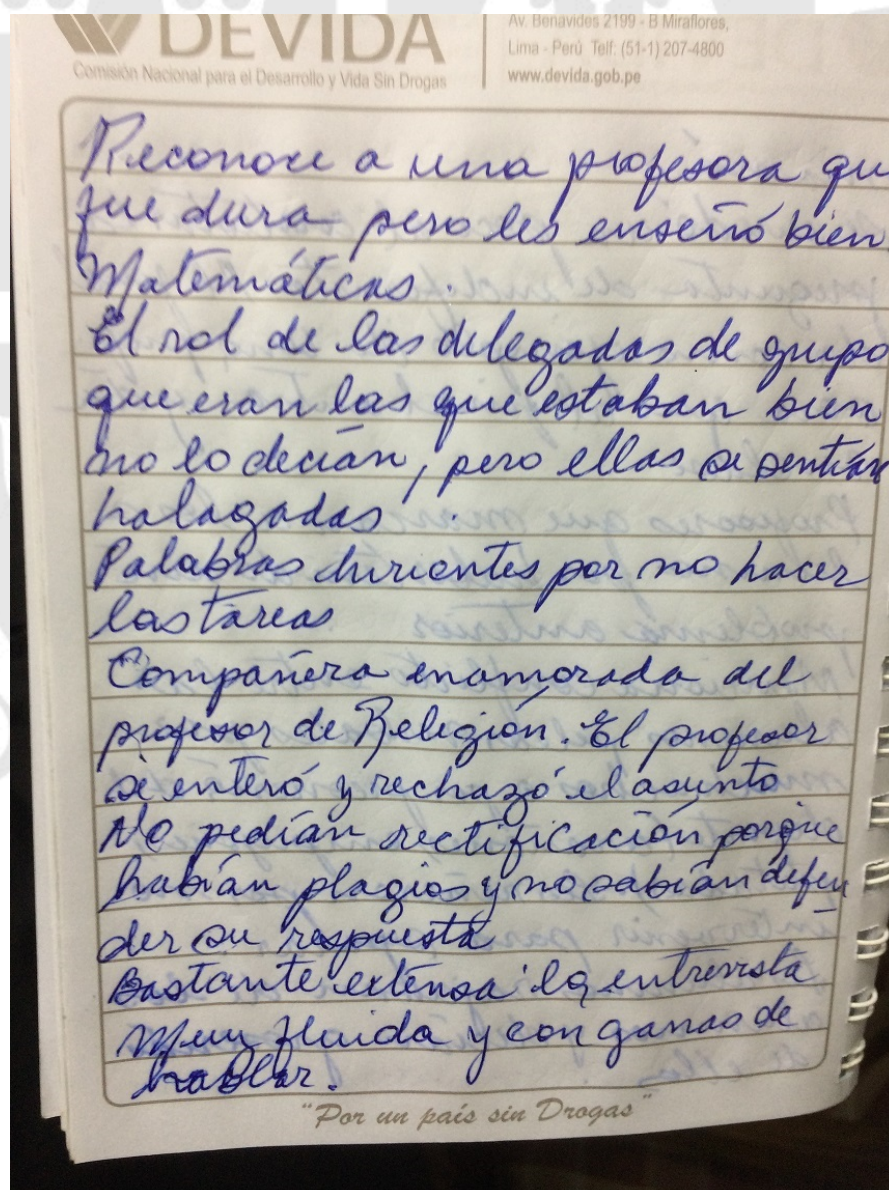 DEVIDA
Comisión Nacional para el Desarrollo y Vida Sin Drogas
Av. Benavides 2199 - B Miraflores,
Lima - Perú Telf: (51-1) 207-4800
www.devida.gob.pe
Reconoce a una profesora qu
fue dura pero les enseñó bien
Matemáticas.
El rol de las delegadas de grupo
que eran las que estaban bien
no lo decían, pero ellas se sentían
halagadas.
Palabras hirientes por no hacer
las tareas
Compañera enamorada del
profesor de Religión. El profesor
se enteró y rechazó el asunto
No pedían rectificación porque
habían plagios y no sabían defen
der su respuesta
Bastante extensa la entrevista
Muy fluida y con ganas de
hablar.
"Por un país sin Drogas"